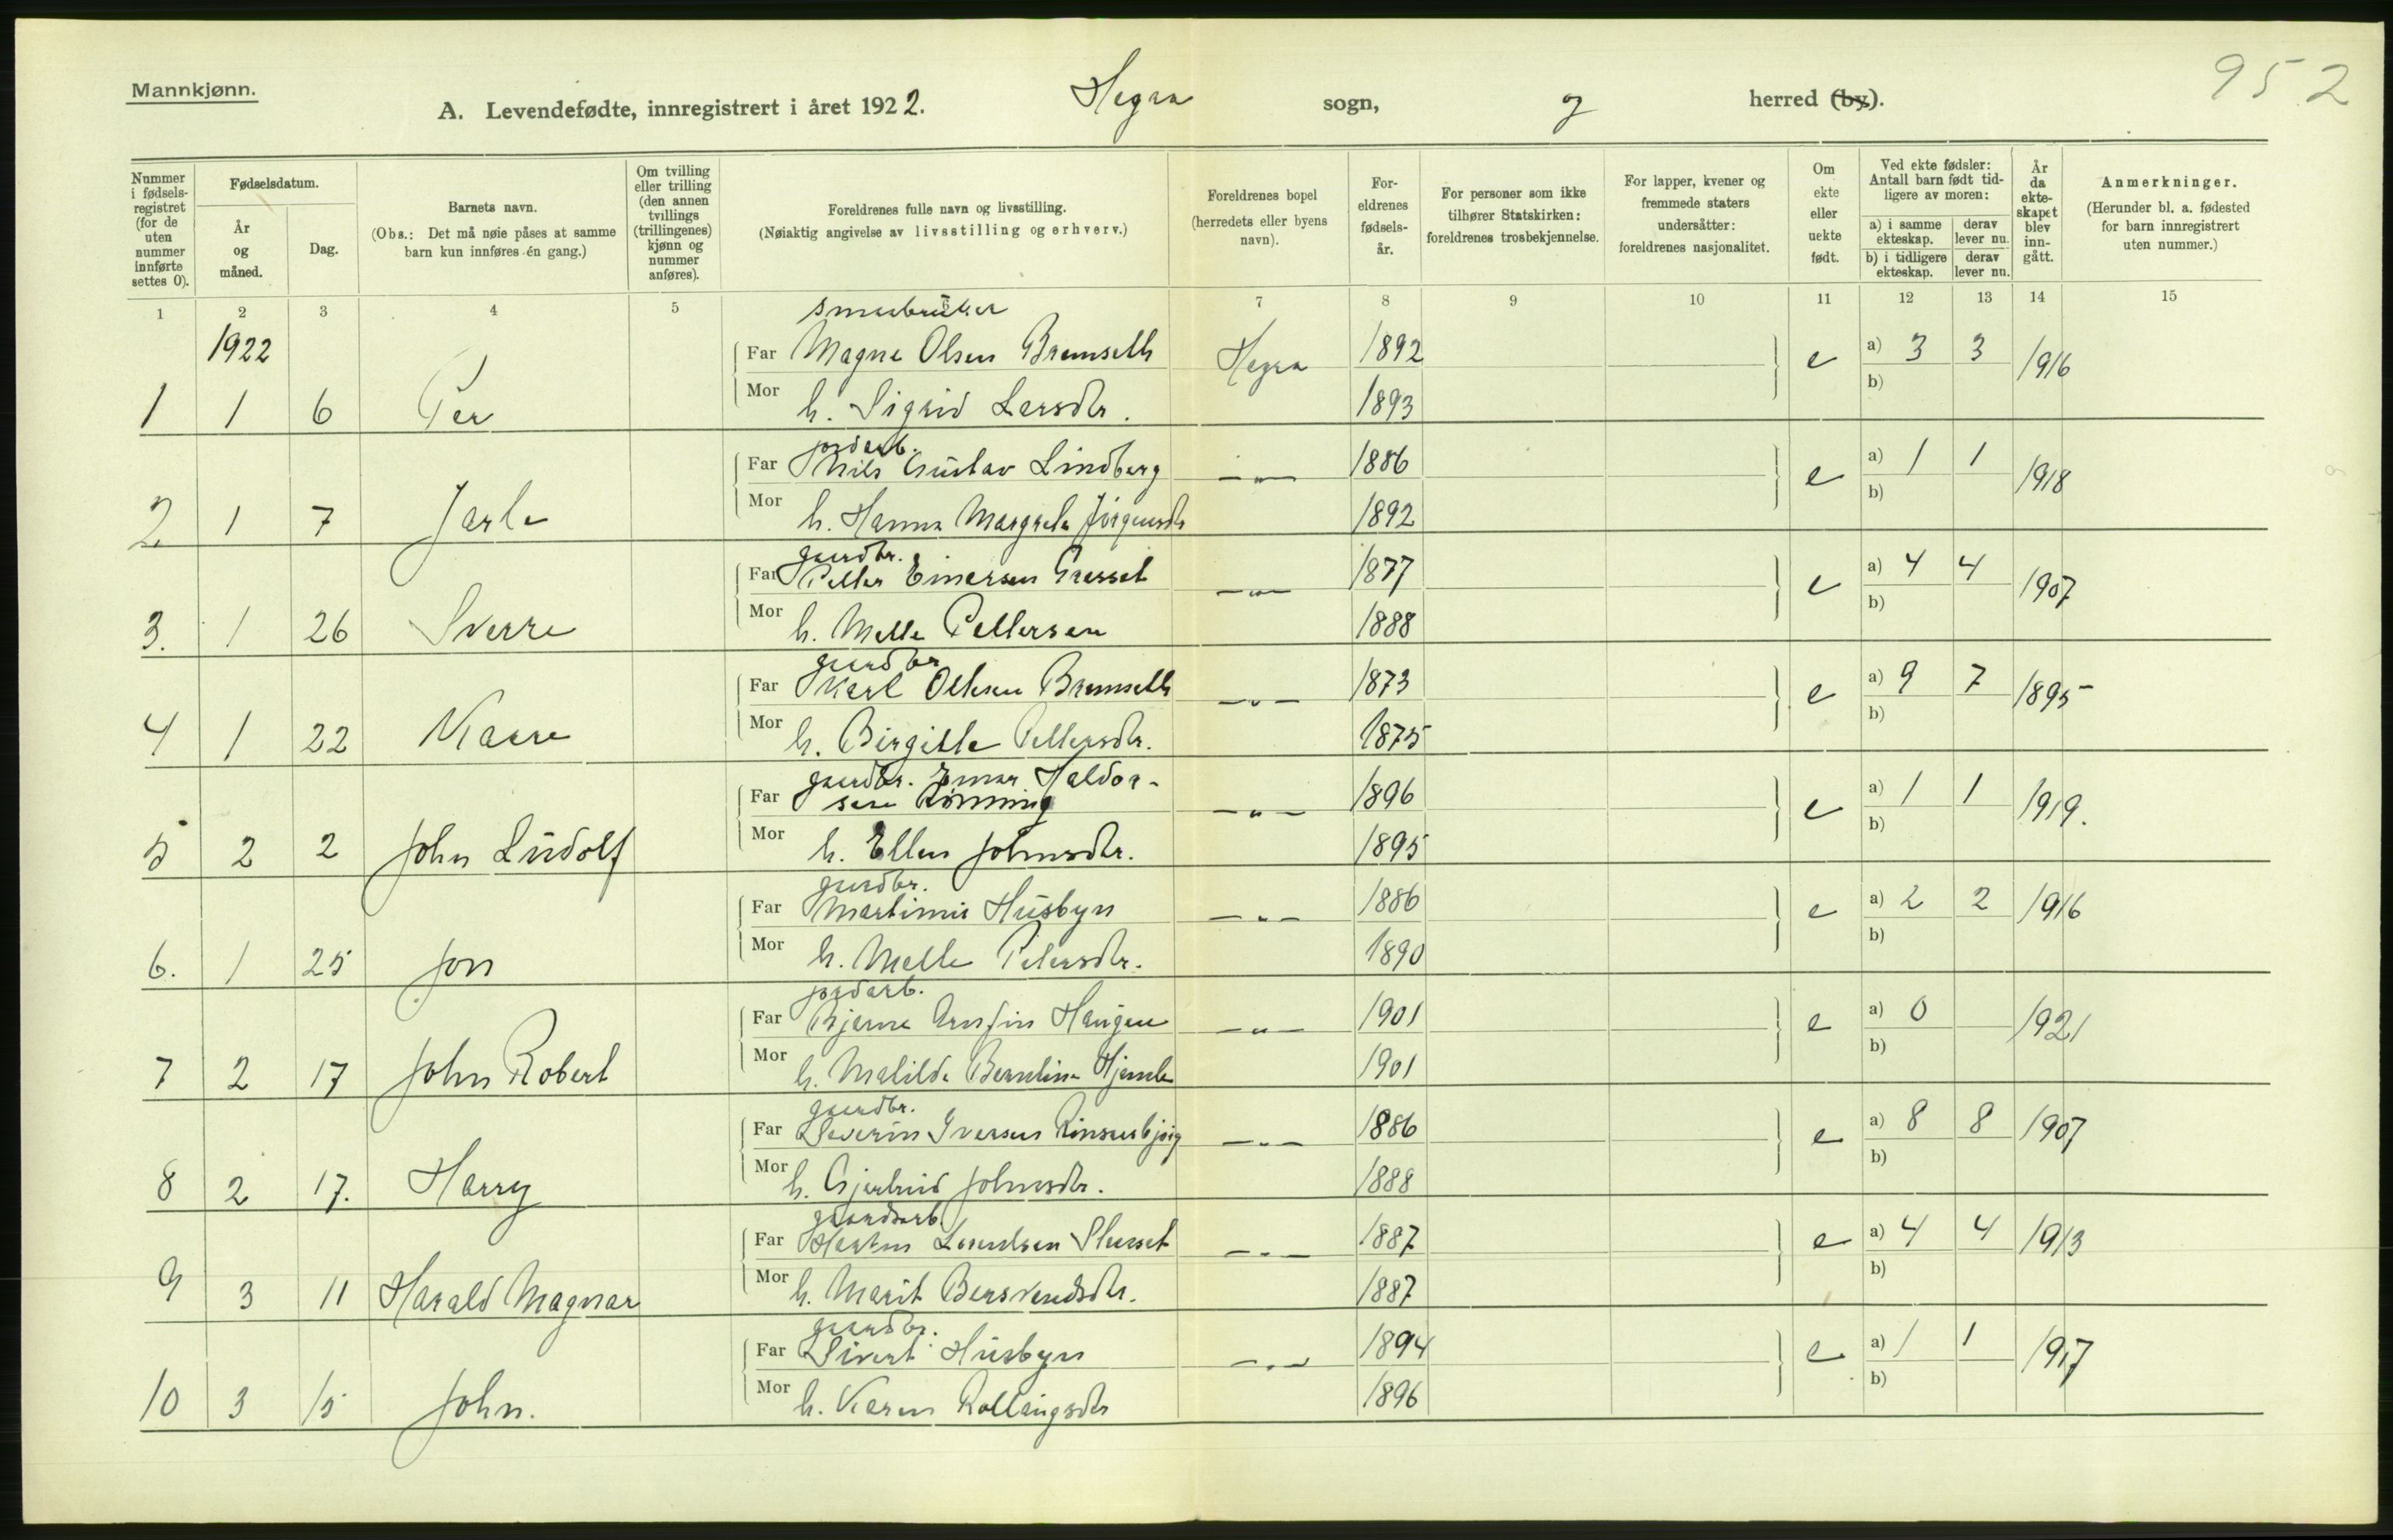 Mannkjønn.
952
A. Levendefødte, innregistrert i året 1922. Hegra sogn, og herred (by).
Nummer i fødsels-registret (for de uten nummer innførte settes 0).
Fødselsdatum.
År og måned.
Dag.
Barnets navn.
(Obs.: Det må nøie påses at samme barn kun innføres én gang.)
Om tvilling eller trilling (den annen tvillings (trillingenes) kjønn og nummer anføres).
Foreldrenes fulle navn og livsstilling.
(Nøiaktig angivelse av livsstilling og erhverv.)
Foreldrenes bopel (herredets eller byens navn).
For-eldrenes fødsels-år.
For personer som ikke tilhører Statskirken: foreldrenes trosbekjennelse.
For lapper, kvener og fremmede staters undersåtter: foreldrenes nasjonalitet.
Om ekte eller uekte født.
Ved ekte fødsler: Antall barn født tid-ligere av moren:
a) i samme ekteskap. derav lever nu.
b) i tidligere ekteskap. derav lever nu.
År da ekte-skapet blev inn-gått.
Anmerkninger.
(Herunder bl. a. fødested for barn innregistrert uten nummer.)
1 2 3 4 5 6 7 8 9 10 11 12 13 14 15
1922
smaabruker
Far Magne Olsen Bremseth Hegra 1892 e a) 3 3 1916
1 1 6 Per Mor h. Sigrid Larsdtr. 1893 b)
jordarb.
Far Nils Gustav Lindberg —"— 1886 e a) 1 1 1918
2 1 7 Jarle Mor h. Hanna Margrete Jörgensdtr 1892 b)
gaardbr.
Far Petter Einarsen —"— 1877 e a) 4 4 1907
3. 1 26 Sverre Mor h. Mette Pettersen 1888 b)
gaardbr
Far Karl Olsen Bremseth —"— 1873 e a) 9 7 1895
4 1 22 Kaare Mor h. Birgitte Pettersdtr. 1875 b)
gaardbr. Einar Haldor-
Far sen Rönning —"— 1896 e a) 1 1 1919.
5 2 2 John Ludolf Mor h. Ellen Johnsdtr. 1895 b)
gardbr.
Far Martinus Husbyn —"— 1886 e a) 2 2 1916
6. 1 25 Jon Mor h. Mette Petersdtr. 1890 b)
jordarb.
Far Bjarne Arnfin Haugen —"— 1901 e a) 0 1921
7 2 17 John Robert Mor h. Matilda 1901 b)
gaardbr.
Far Severin Iversen —"— 1886 e a) 8 8 1907
8 2 17. Harry Mor h. Gjertrud Johnsdtr. 1888 b)
gaardsarb.
Far —"— 1887 e a) 4 4 1913
9 3 11 Harald Magnar Mor h. Marit Bersvendsdtr. 1887 b)
gaardbr.
Far Sivert Husbyn —"— 1894 e a) 1 1 1917
10 3 15 John. Mor h. Karen 1896 b)